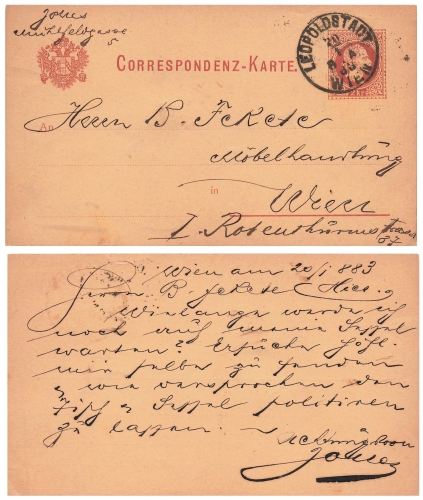 Jones
Mühlfeldgasse
5
CORRESPONDENZ-KARTE.
LEOPOLDSTADT
20
1
83
WIEN
An Herrn B. Fekete
Möbelhandlung
in
Wien
I. Rothenthurmstrasse
37
Wien am 20/1 883
Herrn B. Fekete Hier.
Wie lange werde ich
noch auf meine Sessel
warten? Ersuche höfl.
mir selbe zu senden
wie versprochen den
Sessel politiren
zu lassen. ~
Achtungsvoll
Jones